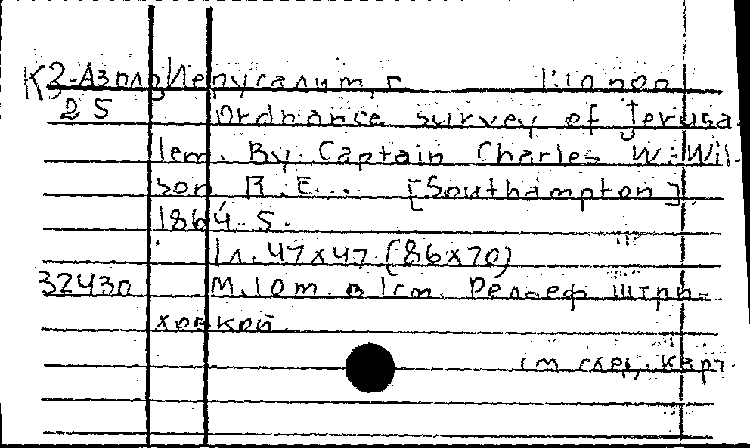 К3-Азпд Иерусалим, г. 1:10.000
25 Ordnance survey of Jerusa-
lem. By Captain Charles W. Wil-
son R.E... [Southampton]
1864-5.
1 л. 47x47 (86x70)
32430 М. 10 m. в 1 cm. Рельеф штри-
ховкой
См след. карт.